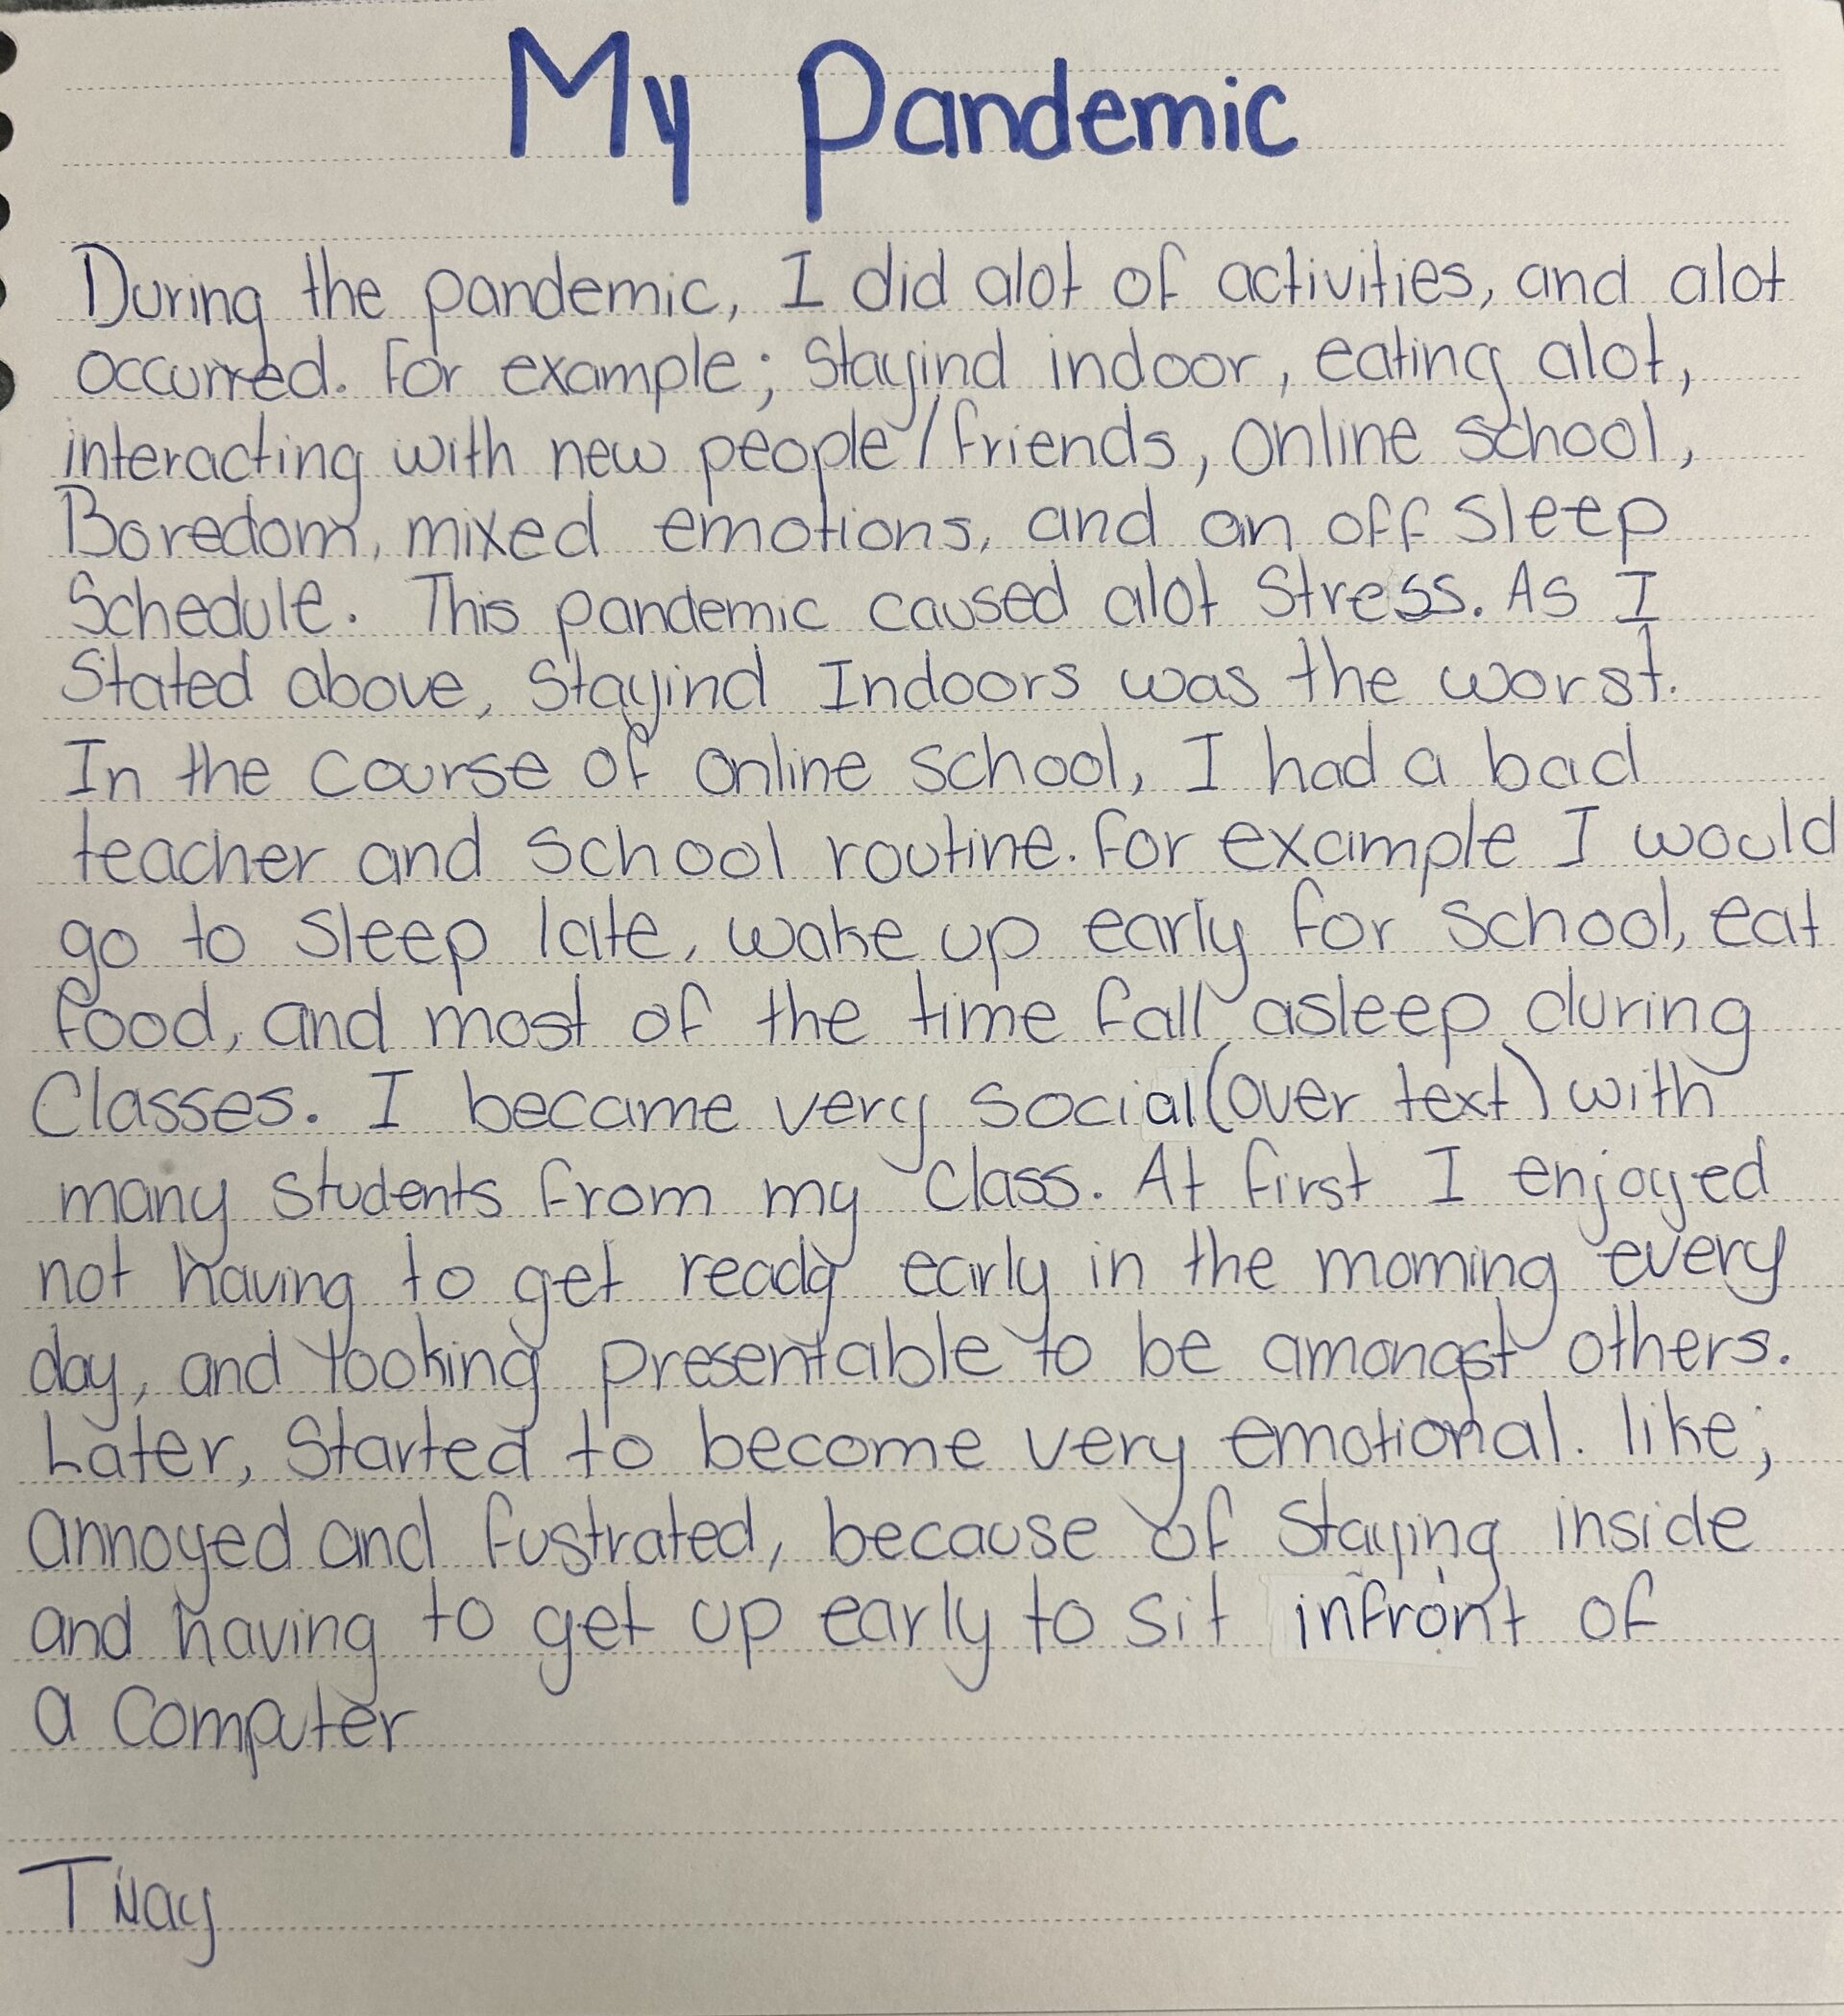 My Pandemic
During the pandemic, I did alot of activities, and alot
occurred. For example; Stayind indoor, eating alot,
interacting with new people/friends, online school,
Boredom, mixed emotions, and an off sleep
Schedule. This pandemic caused alot stress. As I
Stated above, Stayind Indoors was the worst.
In the course of online school, I had a bad
teacher and school routine. For example I would
go to sleep late, wake up early for school, eat
food, and most of the time fall asleep during
Classes. I became very social (over text) with
many students from my class. At first I enjoyed
not having to get ready early in the morning every
day, and looking presentable to be amongst others.
Later, Started to become very emotional. like;
annoyed and fustrated, because of staying inside
and having to get up early to sit infront of
a computer